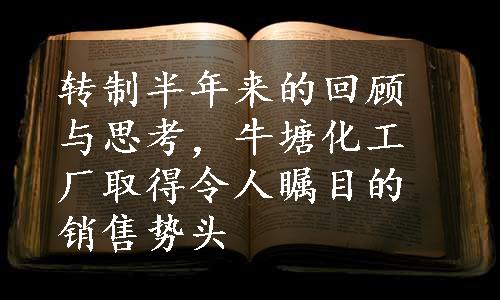 转制半年来的回顾
与思考，牛塘化工
厂取得令人瞩目的
销售势头